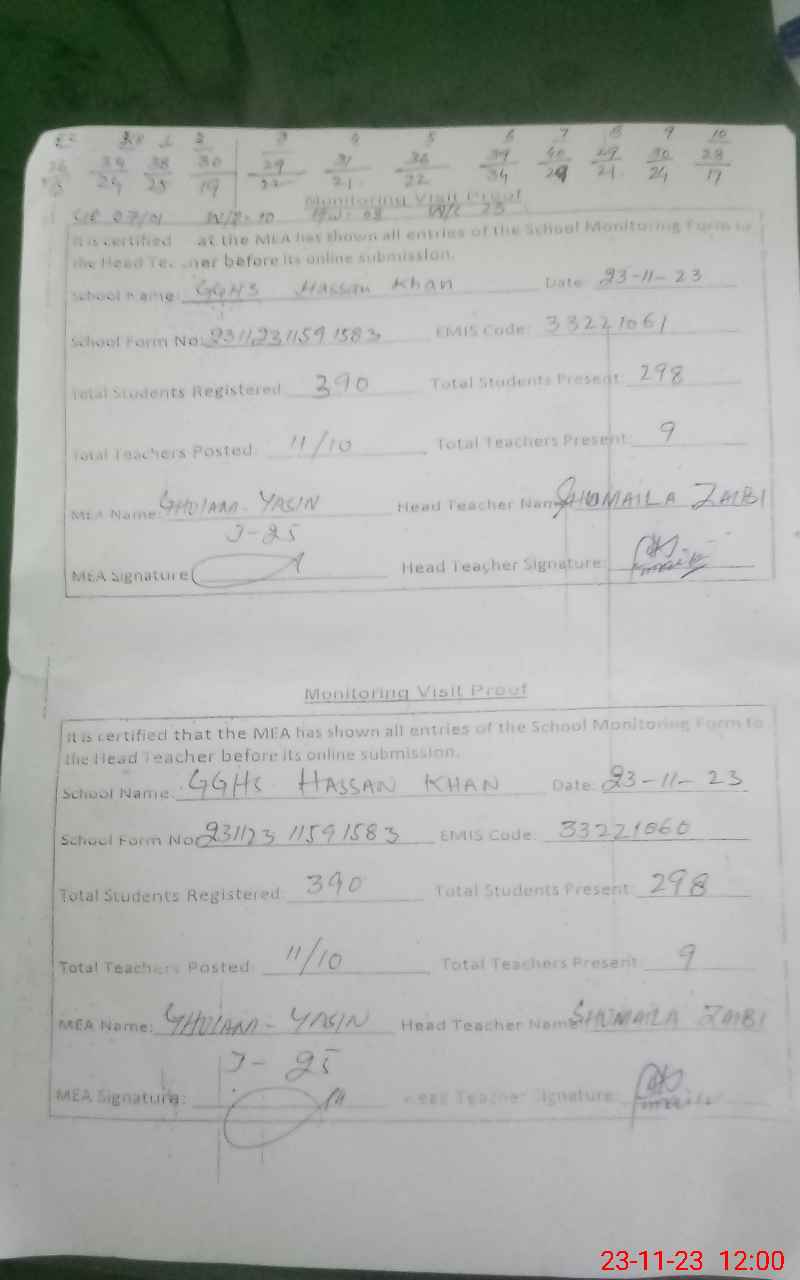 2 3 4 5 6 7 8 9 10
39 38 30 29 31 36 39 40 29 30 28
24 25 19 22 21 22 34 29 21 24 17
Monitoring Visit Proof
It is certified at the MEA has shown all entries of the School Monitoring Form to
the Head Te ner before its online submission.
School Name: GGHS Hassan Khan Date: 23-11-23
School Form No: 2311231159 1583 EMIS Code: 33221061
Total Students Registered: 390 Total Students Present: 298
Total Teachers Posted: 11/10 Total Teachers Present: 9
MEA Name: GHULAM - YASIN Head Teacher Name: SHUMAILA ZAIBI
J-25
MEA Signature: Head Teacher Signature:
Monitoring Visit Proof
It is certified that the MEA has shown all entries of the School Monitoring Form to
the Head Teacher before its online submission.
School Name: GGHS HASSAN KHAN Date: 23-11-23
School Form No: 231123 1159 1583 EMIS Code: 33221060
Total Students Registered: 390 Total Students Present: 298
Total Teachers Posted: 11/10 Total Teachers Present: 9
MEA Name: GHULAM - YASIN Head Teacher Name: SHUMAILA ZAIBI
J-25
MEA Signature: Head Teacher Signature:
23-11-23 12:00